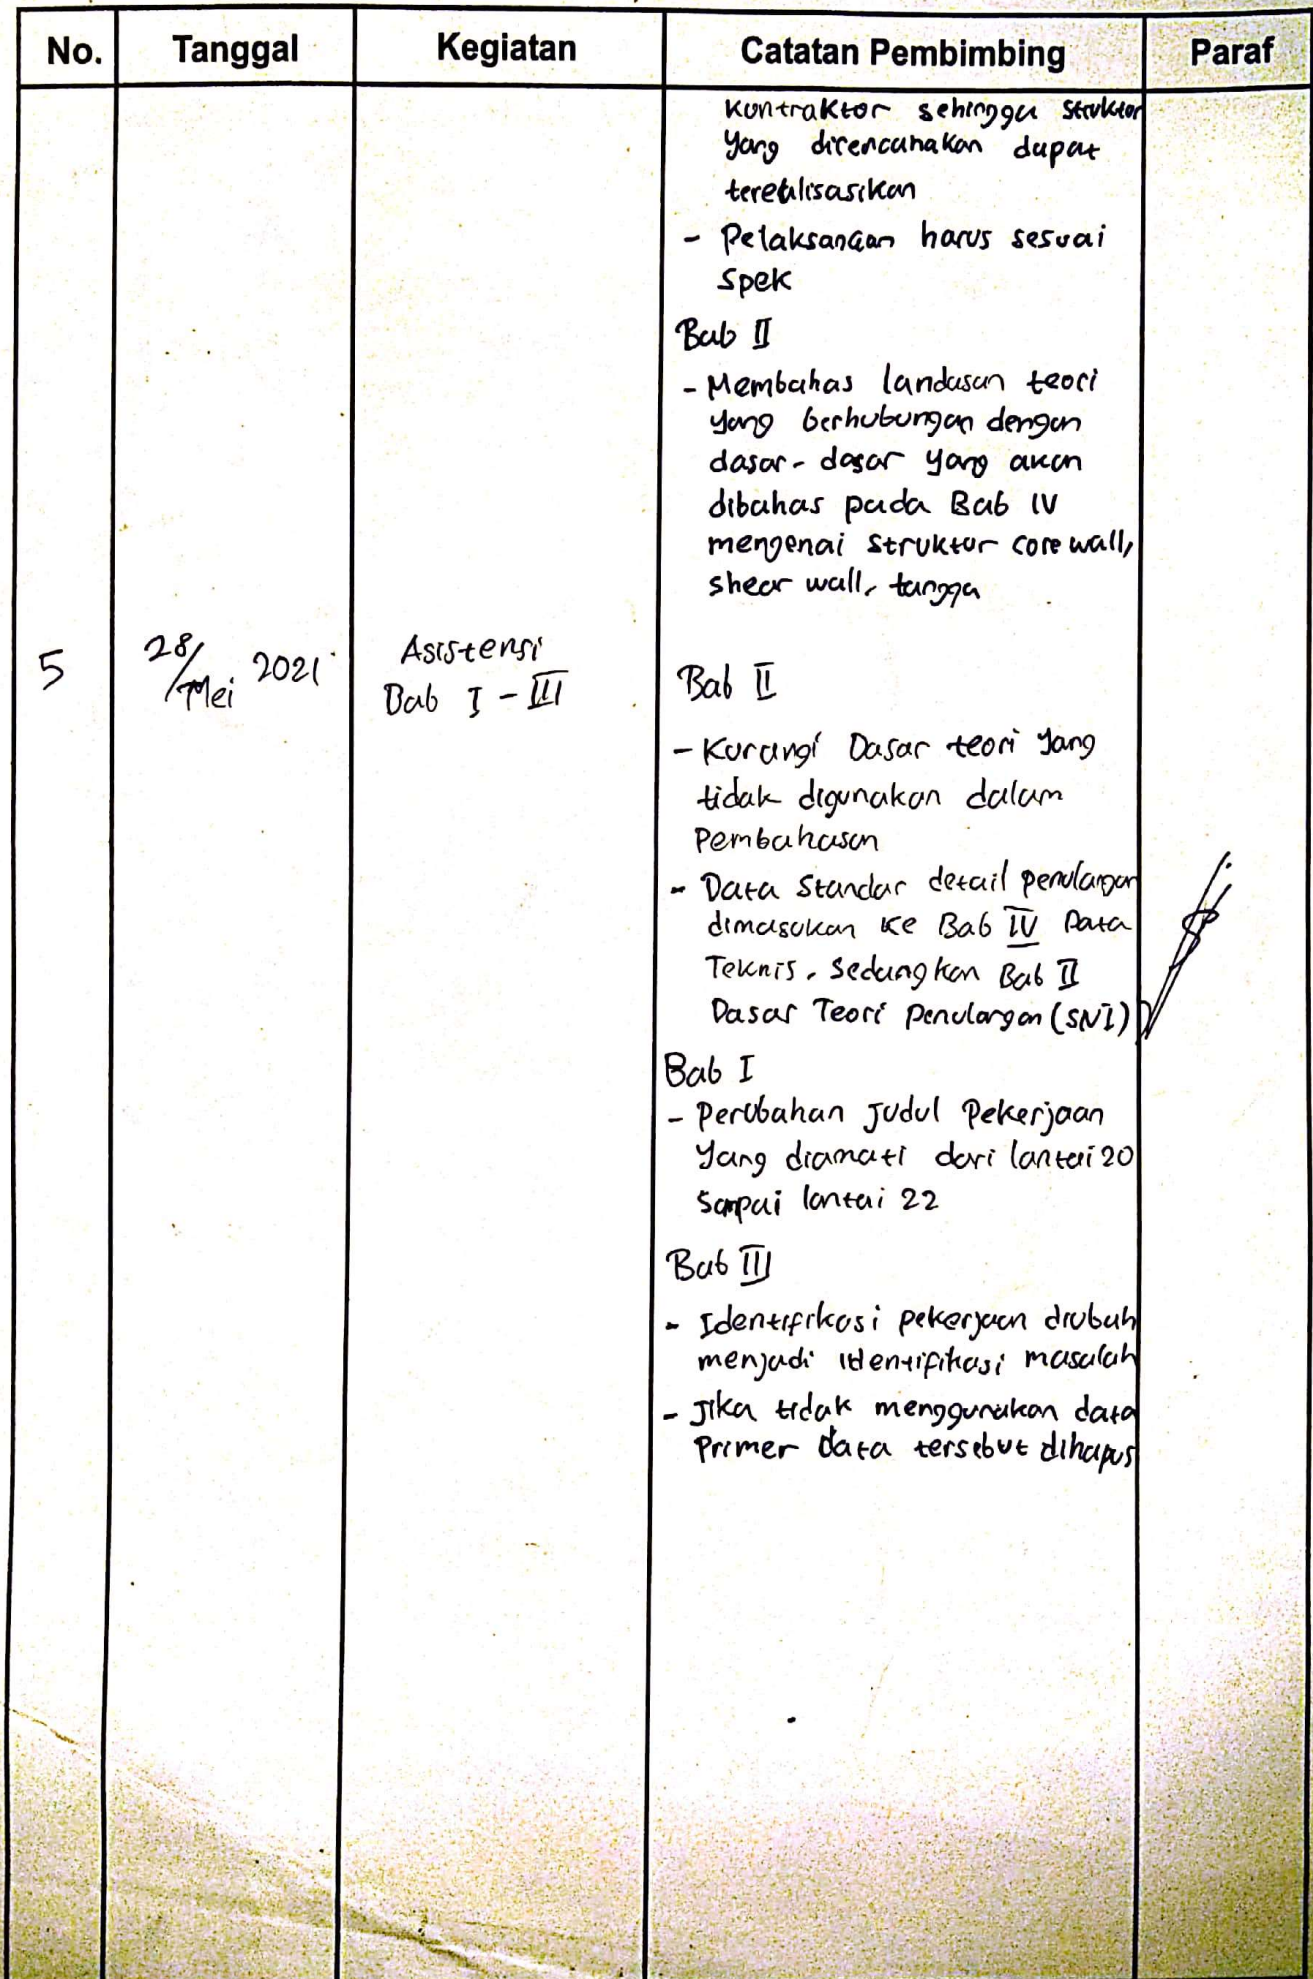 No. Tanggal Kegiatan Catatan Pembimbing Paraf
Kontraktor sehingga struktur
yang direncanakan dapat
terealisasikan
- Pelaksanaan harus sesuai
Spek
Bab II
- Membahas landasan teori
yang berhubungan dengan
dasar-dasar yang akan
dibahas pada Bab IV
mengenai struktur core wall,
shear wall, tangga
5 28/Mei 2021 Asistensi
Bab I - III
Bab II
- Kurangi Dasar teori yang
tidak digunakan dalam
Pembahasan
- Data Standar detail penulangan
dimasukan ke Bab IV Data
Teknis, Sedangkan Bab II
Dasar Teori penulangan (SNI)
Bab I
- Perubahan Judul Pekerjaan
yang diamati dari lantai 20
sampai lantai 22
Bab III
- Identifikasi pekerjaan diubah
menjadi identifikasi masalah
- Jika tidak menggunakan data
Primer data tersebut dihapus